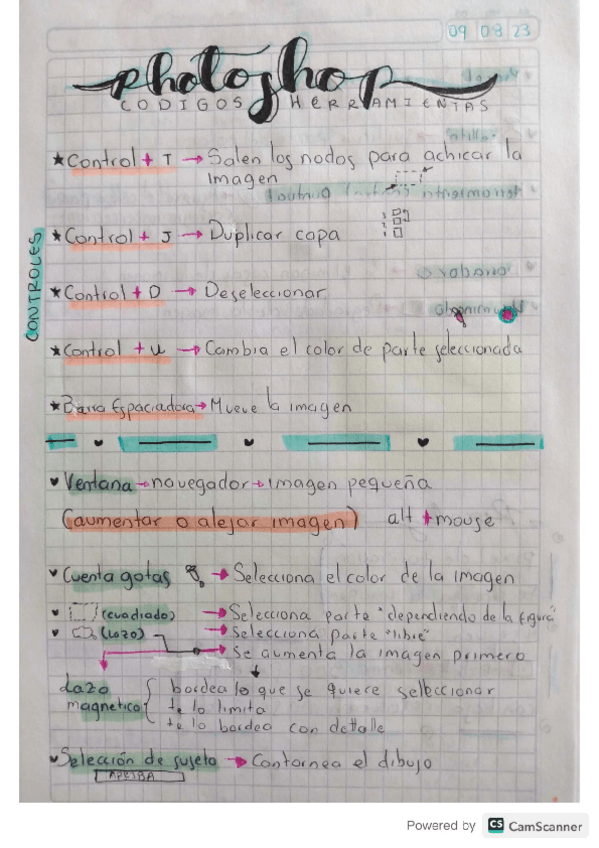 09 08 23
photoshop
CODIGOS HERRAMIENTAS
CONTROLES
★ Control + T → Salen los nodos para achicar la
imagen
★ Control + J → Duplicar capa
★ Control + D → Deseleccionar
★ Control + U → Cambia el color de parte seleccionada
★ Barra Espaciadora → Mueve la imagen
♥ Ventana → navegador → imagen pequeña
(aumentar o alejar imagen) alt + mouse
♥ Cuenta gotas → Selecciona el color de la imagen
♥ (cuadrado) → Selecciona parte "dependiendo de la figura"
♥ (Lazo) → Selecciona parte "libre"
→ Se aumenta la imagen primero
Lazo magnetico { bordea lo que se quiere selbccionar
te lo limita
te lo bordea con detalle
♥ Selección de sujeto → Contornea el dibujo
ARRIBA
Powered by CS CamScanner